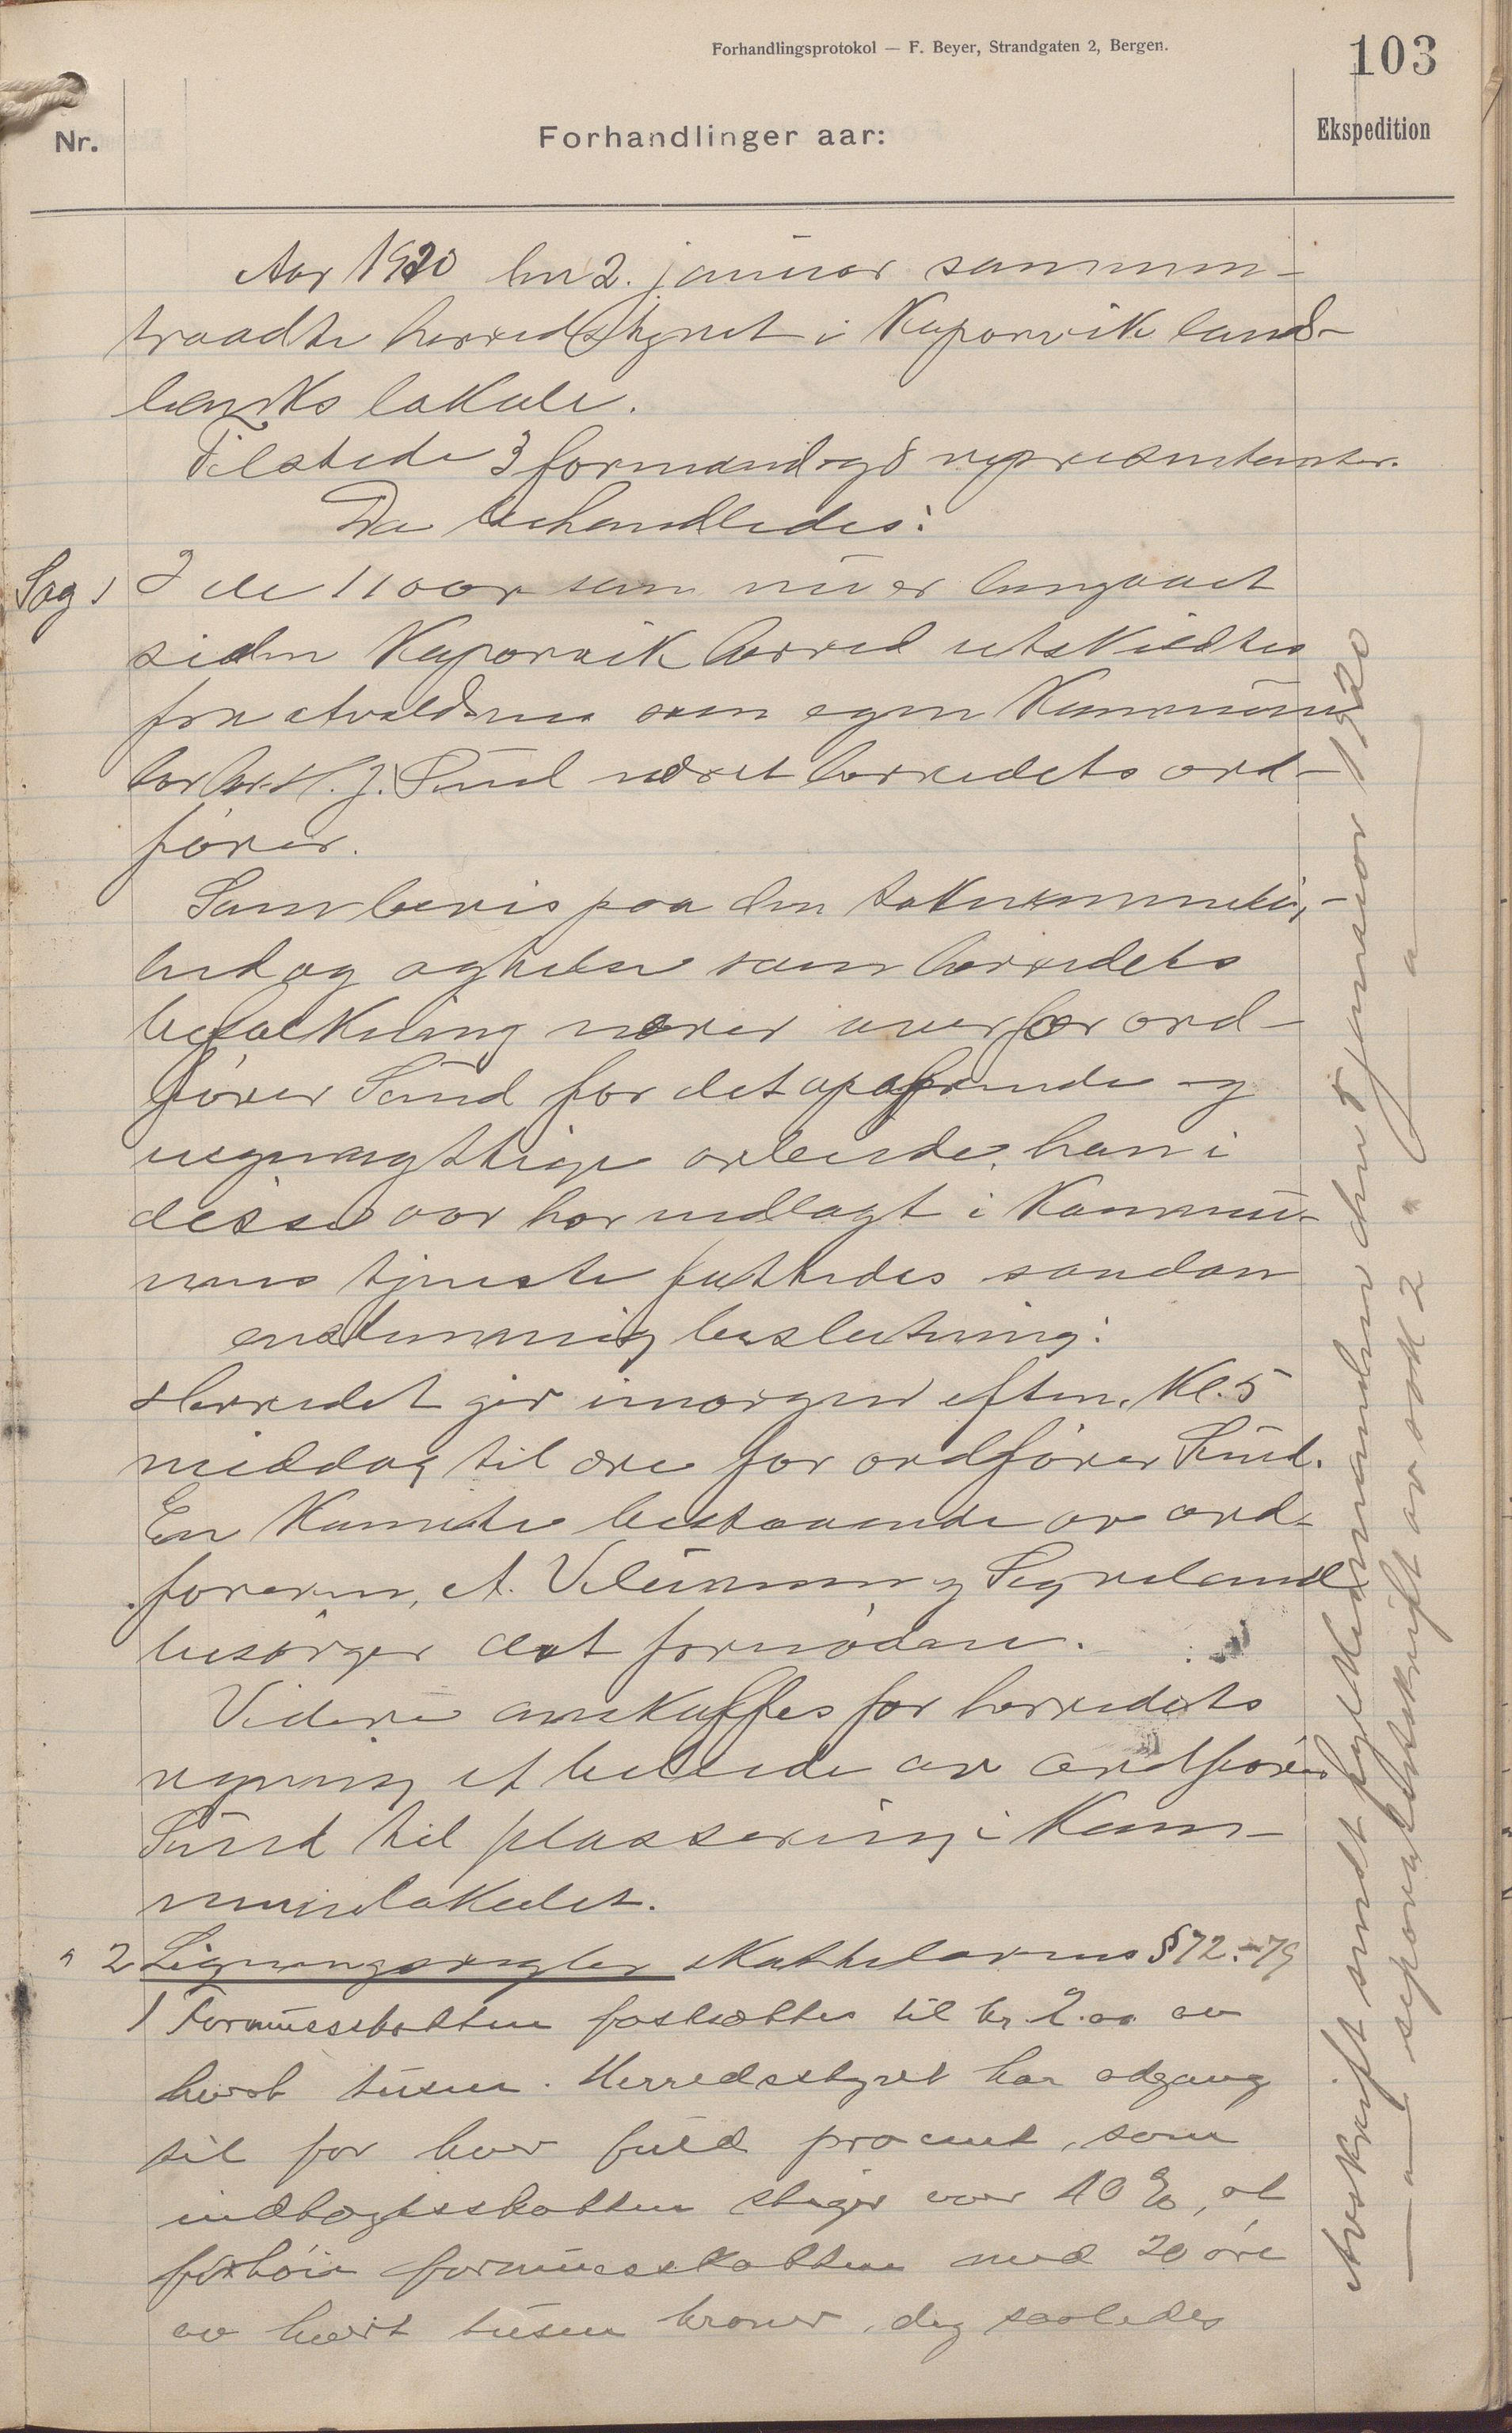 Forhandlingsprotokol — F. Beyer, Strandgaten 2, Bergen.
103
Nr.
Forhandlinger aar:
Ekspedition
Aar 1920 den 2. januar sammen-
traadte herredstyret i Kopervik land-
banks lokale.
Tilstede 3 formænd og 8 representanter.
Da behandledes:
Sag 1 I de 11 aar som nu er hengaaet
siden Kopervik herred utskildtes
fra Avaldsnes som egen Kommune
har hr. H. J. Sund været herredets ord-
fører.
Som bevis paa den taknemmelig-
hed og agtelse som herredets
befolkning nærer overfor ord-
fører Sund for det opofrende og
uegennyttige arbeide, han i
disse aar har nedlagt i Kommu-
nens tjeneste fattedes saadan
enstemmig beslutning:
Herredet gir imorgen efterm. Kl. 5
middag til ære for ordfører Sund.
En Komite bestaaende av ord-
føreren, A. Velde og Sygneland
besørger det fornødne.
Videre anskaffes for herredets
regning et billede av ordfører
Sund til plassering i Kom-
munelokalet.
" 2 Ligningsregler Skattelovens § 72-79
1 Formuesskatten fastsættes til kr. 2.00 av
hvert tusen. Herredsstyret har adgang
til for hver fuld procent, som
indtægtsskatten stiger over 10 %, at
forhøie formuesskatten med 20 øre
av hvert tusen kroner, dog saaledes
Avskrift sendt fylkesmanden den 5 januar 1920
— " — separatutskrift av sak 2 " — " —